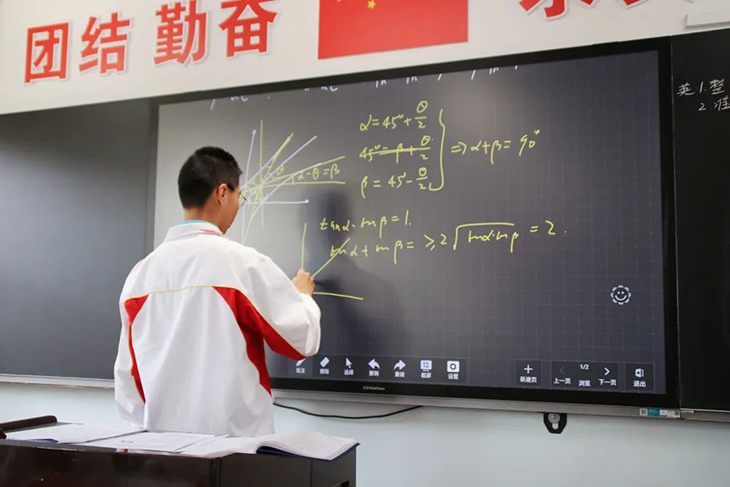 团结 勤奋
α=45°+θ/2
45°=β+θ/2
⇒α+β=90°
β=45°-θ/2
α-θ=β
θ
tanα·tanβ=1.
tanα+tanβ=≥2√tanα·tanβ=2.
英 1.
2.
批注 擦除 选择 撤销 重做 截屏 设置
新建页 上一页 1/2 浏览 下一页 退出